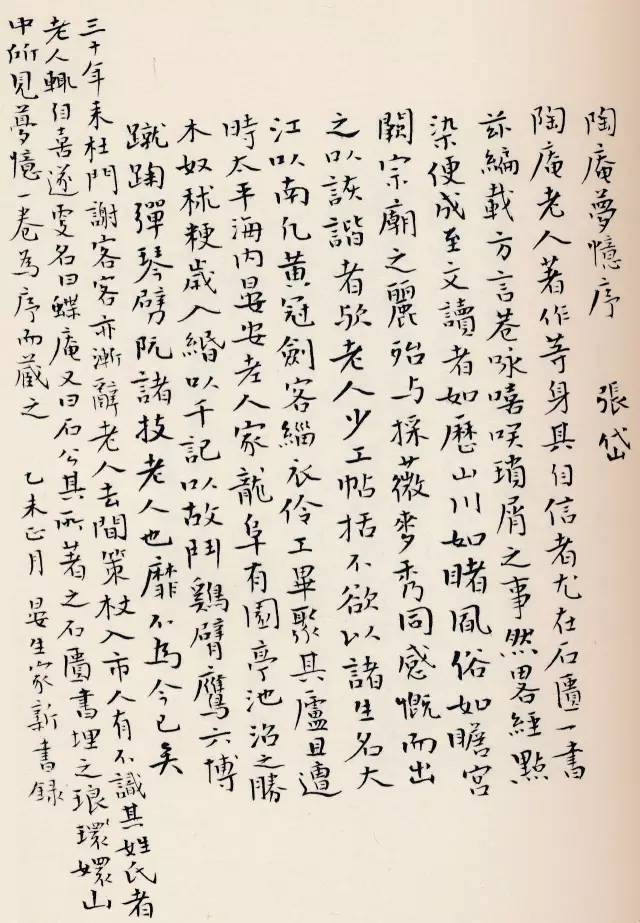 陶庵夢憶序　張岱
陶庵老人著作等身其自信者尤在石匱一書
茲編載方言巷咏嘻笑瑣屑之事然畧經點
染便成至文讀者如歷山川如睹風俗如瞻宮
闕宗廟之麗殆与採薇麥秀同感慨而出
之以詼諧者欤老人少工帖括不欲以諸生名大
江以南凡黃冠劍客緇衣伶工畢聚其廬且遭
時太平海內晏安老人家龍阜有園亭池沼之勝
木奴秫粳歲入緡以千記以故鬥鷄臂鷹六博
蹴踘彈琴劈阮諸技老人也靡不爲今已矣
三十年来杜門謝客客亦漸辭老人去間策杖入市人有不識其姓氏者
老人輒自喜遂更名曰蝶庵又曰石公其所著之石匱書埋之琅環嬛山
中所見夢憶一卷為序而藏之　乙未正月　晏生家新書錄